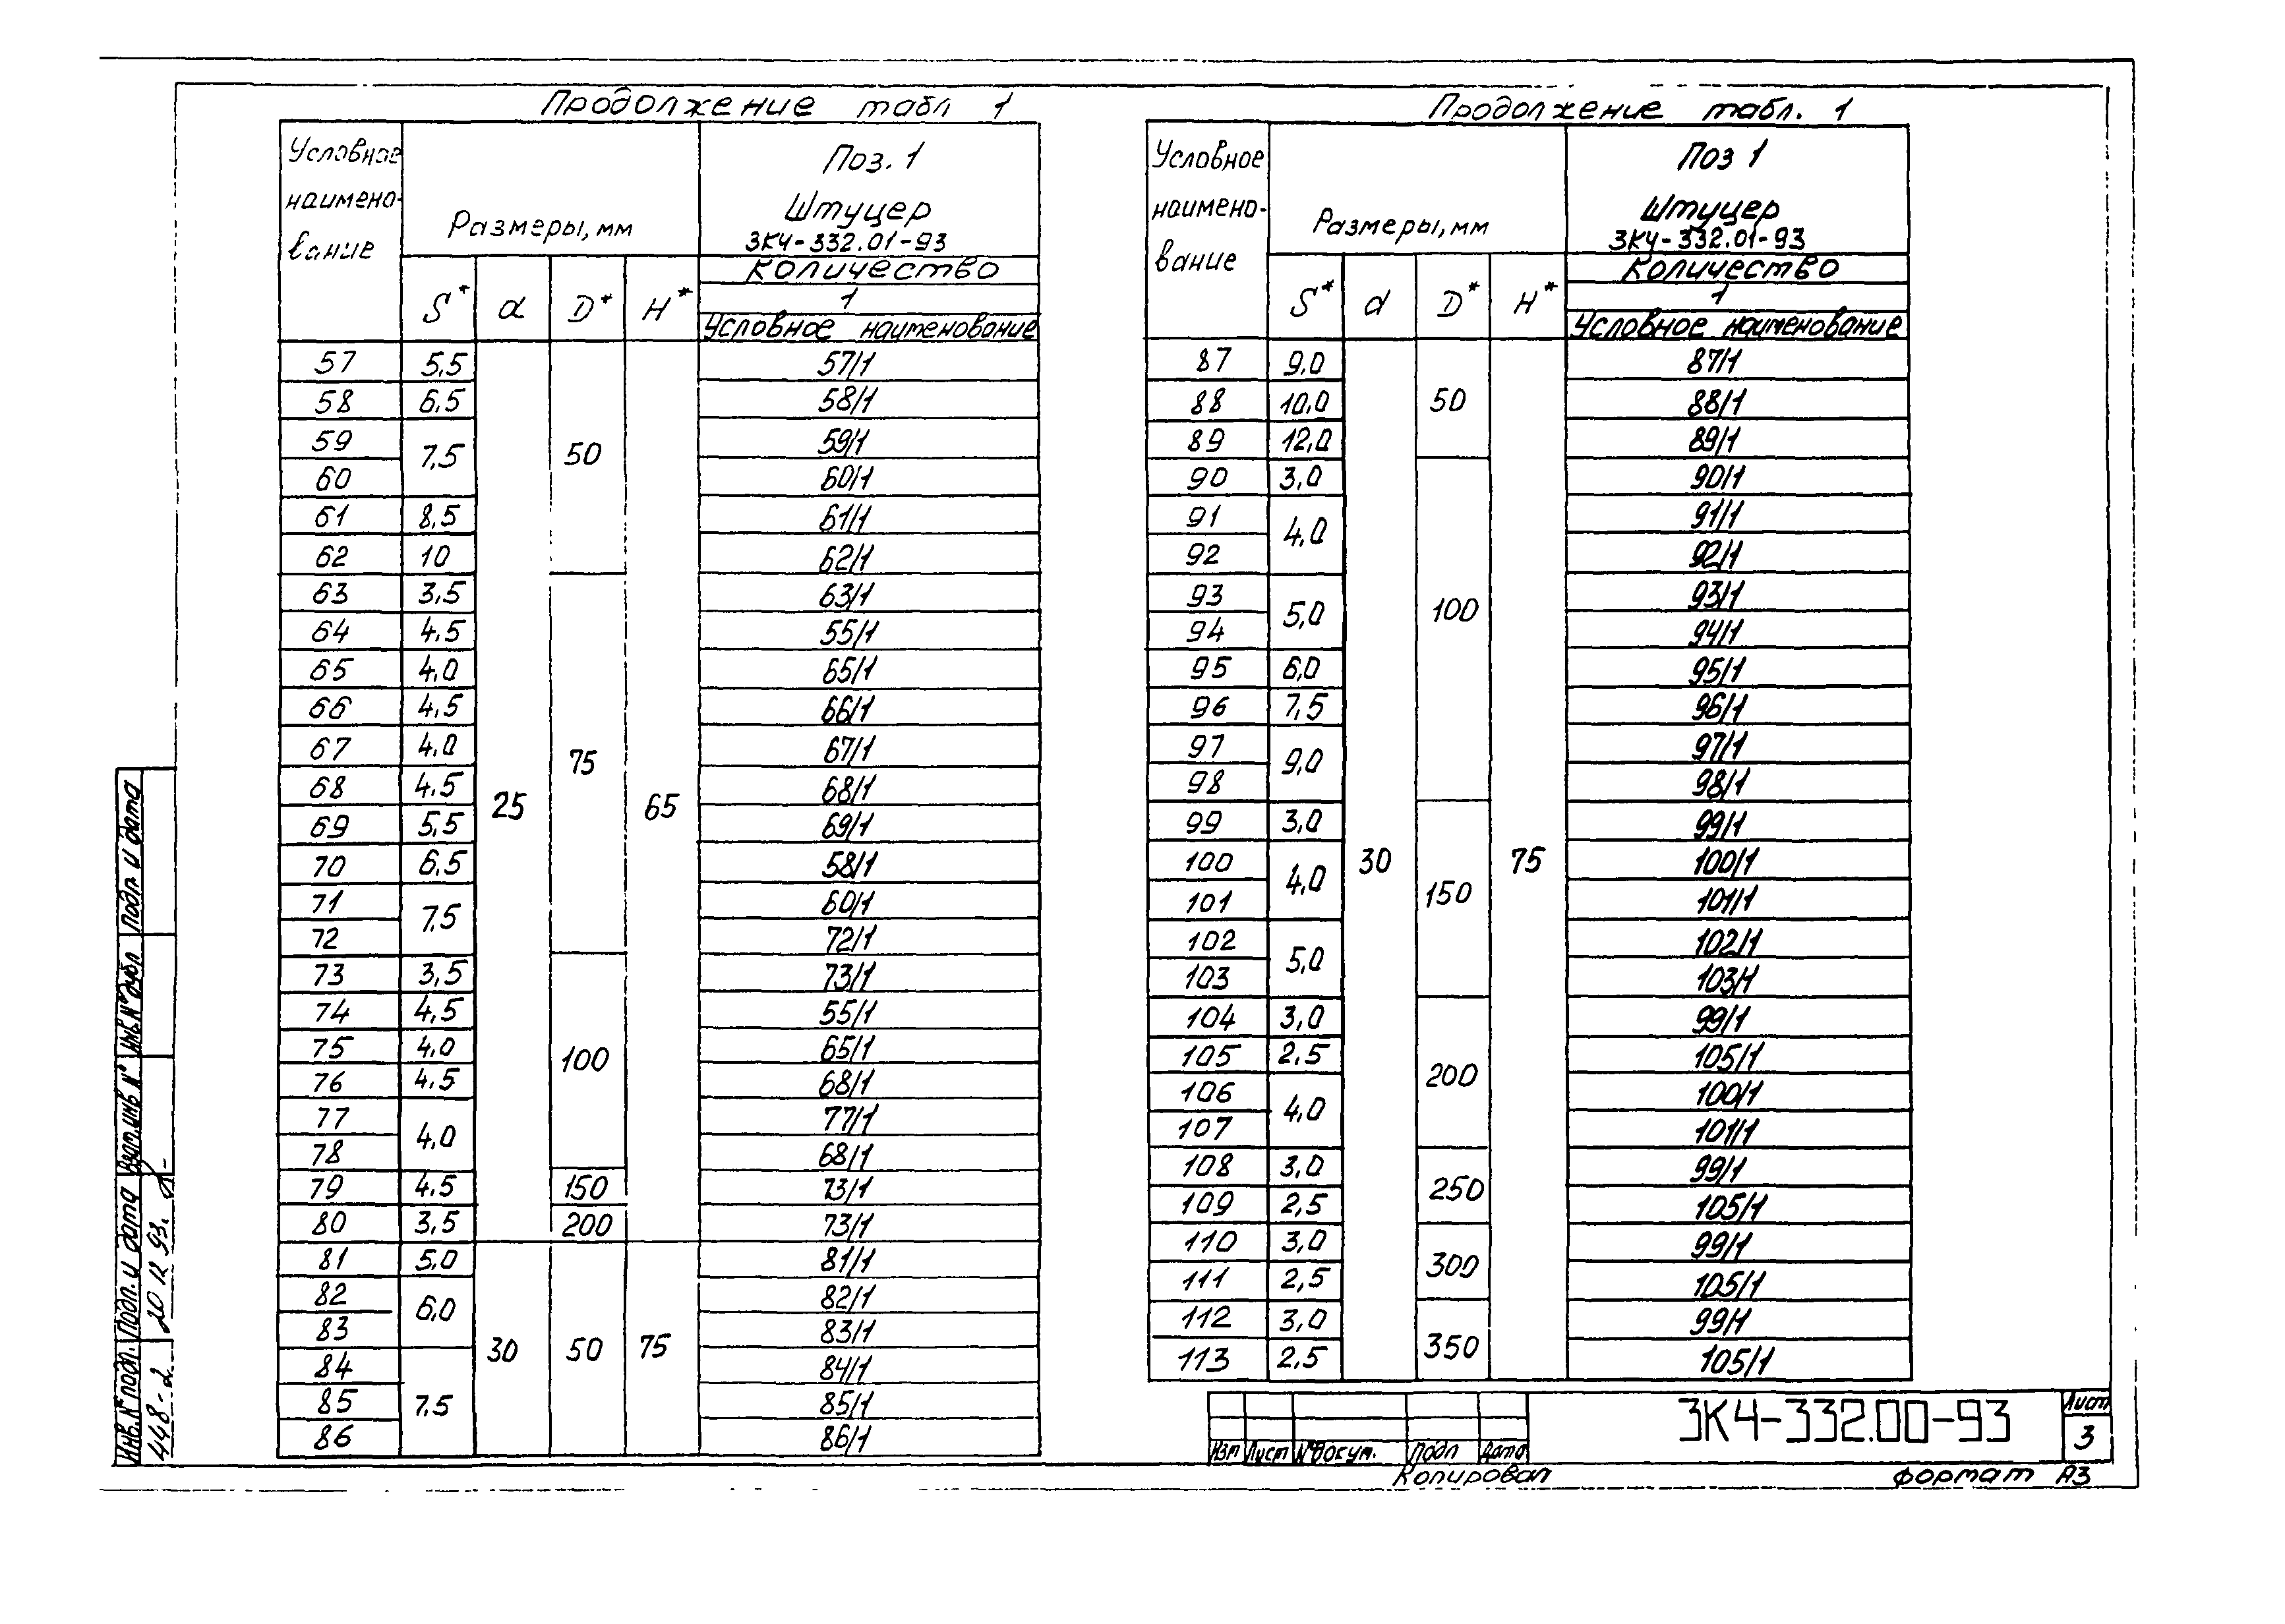 Продолжение табл 1
Условное наимено- вание | Размеры, мм | Поз. 1
Штуцер
ЗК4-332.01-93
Количество
1
S* d D* H* Условное наименование
57 5,5 25 50 65 57/1
58 6,5 58/1
59 7,5 59/1
60 60/1
61 8,5 61/1
62 10 62/1
63 3,5 75 63/1
64 4,5 55/1
65 4,0 65/1
66 4,5 66/1
67 4,0 67/1
68 4,5 68/1
69 5,5 69/1
70 6,5 58/1
71 7,5 60/1
72 72/1
73 3,5 100 73/1
74 4,5 55/1
75 4,0 65/1
76 4,5 68/1
77 4,0 77/1
78 68/1
79 4,5 150 73/1
80 3,5 200 73/1
81 5,0 30 50 75 81/1
82 6,0 82/1
83 83/1
84 7,5 84/1
85 85/1
86 86/1
Продолжение табл. 1
Условное наимено- вание | Размеры, мм | Поз 1
Штуцер
ЗК4-332.01-93
Количество
1
S* d D* H* Условное наименование
87 9,0 30 50 75 87/1
88 10,0 88/1
89 12,0 89/1
90 3,0 100 90/1
91 4,0 91/1
92 92/1
93 5,0 93/1
94 94/1
95 6,0 95/1
96 7,5 96/1
97 9,0 97/1
98 98/1
99 3,0 150 99/1
100 4,0 100/1
101 101/1
102 5,0 102/1
103 103/1
104 3,0 200 99/1
105 2,5 105/1
106 4,0 100/1
107 101/1
108 3,0 250 99/1
109 2,5 105/1
110 3,0 300 99/1
111 2,5 105/1
112 3,0 350 99/1
113 2,5 105/1
Инв.№ подл. Подп. и дата Взам.инв № Инв.№ дубл Подп и дата
448-2 20 12 93.
Изм Лист № докум. Подп Дата
ЗК4-332.00-93
Лист
3
Копировал
Формат А3